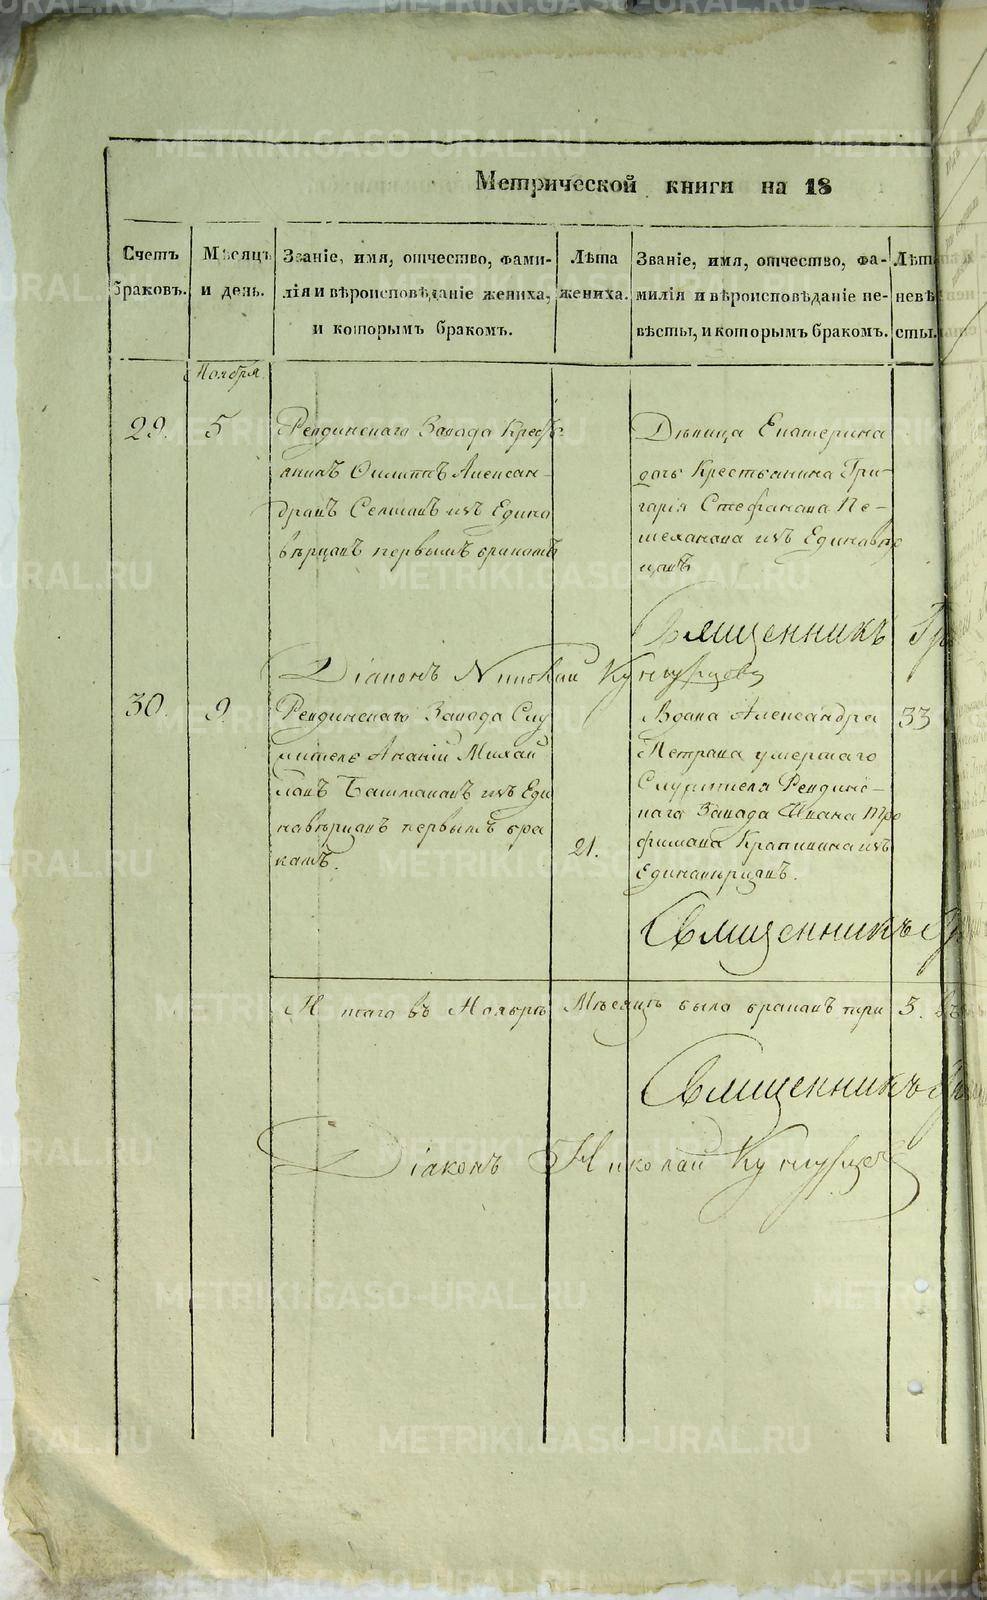 Метрической книги на 18
Счетъ браковъ.
Мѣсяцъ и день.
Званіе, имя, отчество, фами-
лія и вѣроисповѣданіе жениха,
и которымъ бракомъ.
Лѣта
жениха.
Званіе, имя, отчество, фа-
милія и вѣроисповѣданіе не-
вѣсты, и которымъ бракомъ.
Лѣт
невѣ
сты.
Ноября
29.
5
Ревдинскаго Завода Кресть
янинъ Филиппъ Алексан-
дровъ из Едино
вѣрцовъ первымъ бракомъ
Дѣвица Екатерина
дочь Крестьянина Гри-
гарія Стефанова Пе-
шеханова изъ Единовѣр
цовъ
Священникъ Гр
Діаконъ Николай Кунгурцевъ
30.
9.
Ревдинскаго Завода Слу
житель Ананій Михай
ловъ Башмаковъ изъ Еди
навѣрцовъ первымъ бра
комъ.
21.
Вдова Александра
Петрова умершаго
Служителя Ревдинс-
каго Завода Ивана Тро
фимова Крапивина изъ
Единавѣрцовъ.
33
Священникъ Гр
И того въ Ноябрѣ Мѣсяцѣ было браковъ три 3.
Священникъ Гр
Діаконъ Николай Кунгурцевъ
METRIKI.GASO-URAL.RU